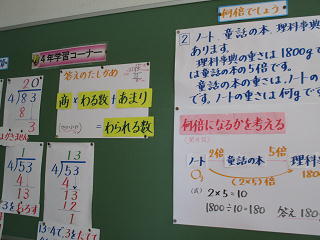 4年学習コーナー
20
4)83
8
3
答えのたしかめ
商×わる数+あまり
=わられる数
4)53
4
13
4)53
4
13
12
1
何倍でしょう
2 ノート、童話の本、理科事典の
あります。
理科事典の重さは1800gで
は童話の本の5倍です。
童話の本の重さは、ノートの
です。ノートの重さは何gで
何倍になるかを考える
2倍 5倍
ノート 童話の本 理科
(2×5)倍 1800
(式) 2×5=10
1800÷10=180 答え180